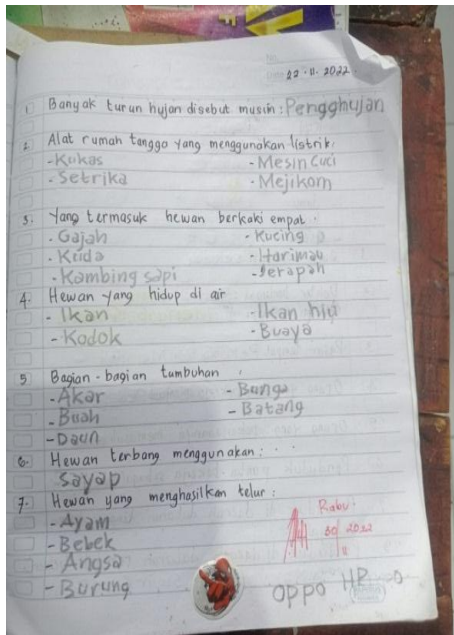 No.
22 - 11 - 2022
1. Banyak turun hujan disebut musim : Pengghujan
2. Alat rumah tangga yang menggunakan listrik:
- Kukas - Mesin Cuci
- Setrika - Mejikom
3. Yang termasuk hewan berkaki empat .
- Gajah - Kucing
- Kuda - Harimau
- Kambing sapi - Jerapah
4. Hewan yang hidup di air
- Ikan - Ikan hiu
- Kodok - Buaya
5. Bagian - bagian tumbuhan
- Akar - Bunga
- Buah - Batang
- Daun
6. Hewan terbang menggunakan :
Sayap
7. Hewan yang menghasilkan telur :
- Ayam
- Bebek
- Angsa
- Burung
Rabu
30/11 2022
OPPO HP